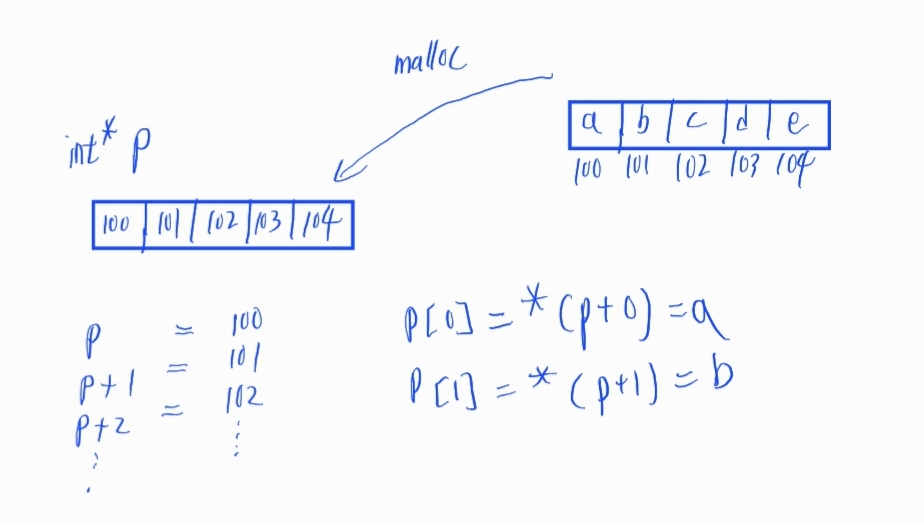 malloc
int* p
a b c d e
100 101 102 103 104
100 101 102 103 104
p = 100
p+1 = 101
p+2 = 102
p[0] = *(p+0) = a
p[1] = *(p+1) = b